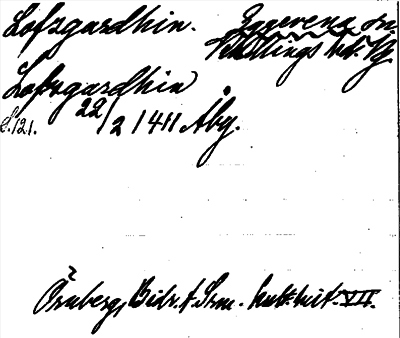 Lofsgardhin. Eggerena sn.
Skyllings hd. Vg.
Lofsgardhin
S. 121. 22/2 1411 Åby.
Örnberg, Bidr. t. Srm. kult. hist. VII.